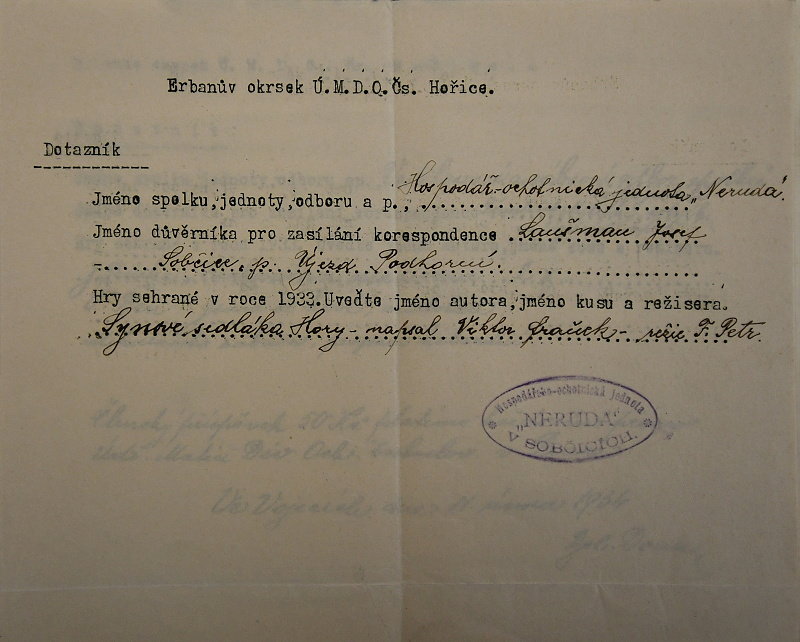 Erbanův okrsek Ú.M.D.O.Čs. Hořice.
Dotazník
Jméno spolku, jednoty, odboru a p., Hospodář.-ochotnická jednota „Neruda“.
Jméno důvěrníka pro zasílání korespondence Laušman Josef
Sobčice, p. Újezd Podhorní.
Hry sehrané v roce 1933. Uveďte jméno autora, jméno kusu a režisera.
Synové sedláka Hory - napsal Viktor - režie F. Petr.
Hospodářsko-ochotnická jednota
„NERUDA“
V SOBČICÍCH.